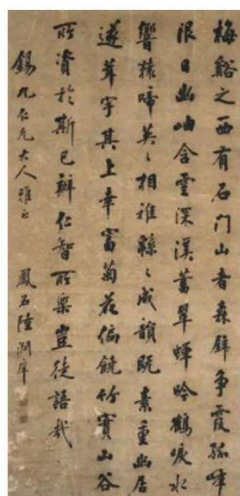 梅谿之西有石門山者森壁爭霞孤峰
限日幽岫含雲深溪蓄翠蟬吟鶴唳水
響猿啼英英相雜緜緜成韻既素重幽居
遂葺宇其上幸富菊花偏饒竹實山谷
所資於斯已辦仁智所樂豈徒語哉
錫九仁兄大人雅正
鳳石陸潤庠